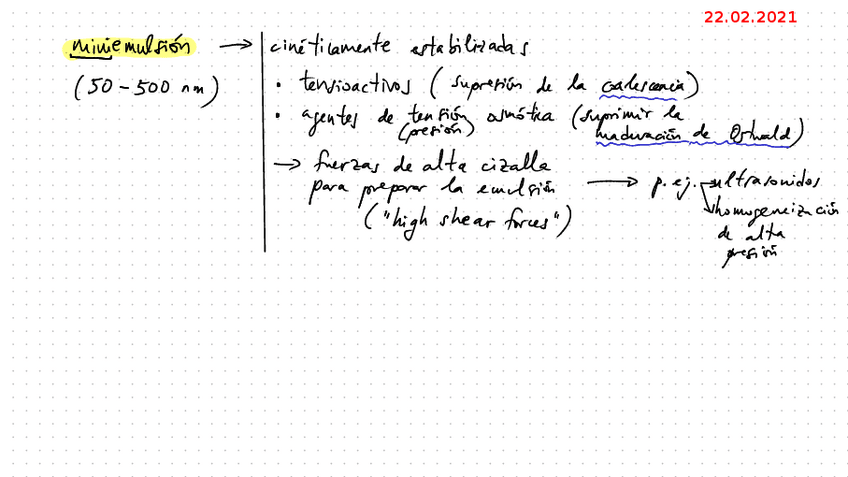 22.02.2021
miniemulsión → cinéticamente estabilizadas
(50-500 nm)
• tensioactivos (supresión de la coalescencia)
• agentes de tensión osmótica (suprimir la
(presión)
maduración de Ostwald)
→ fuerzas de alta cizalla
para preparar la emulsión → p.ej. → ultrasonidos
("high shear forces")
homogeneización
de alta
presión